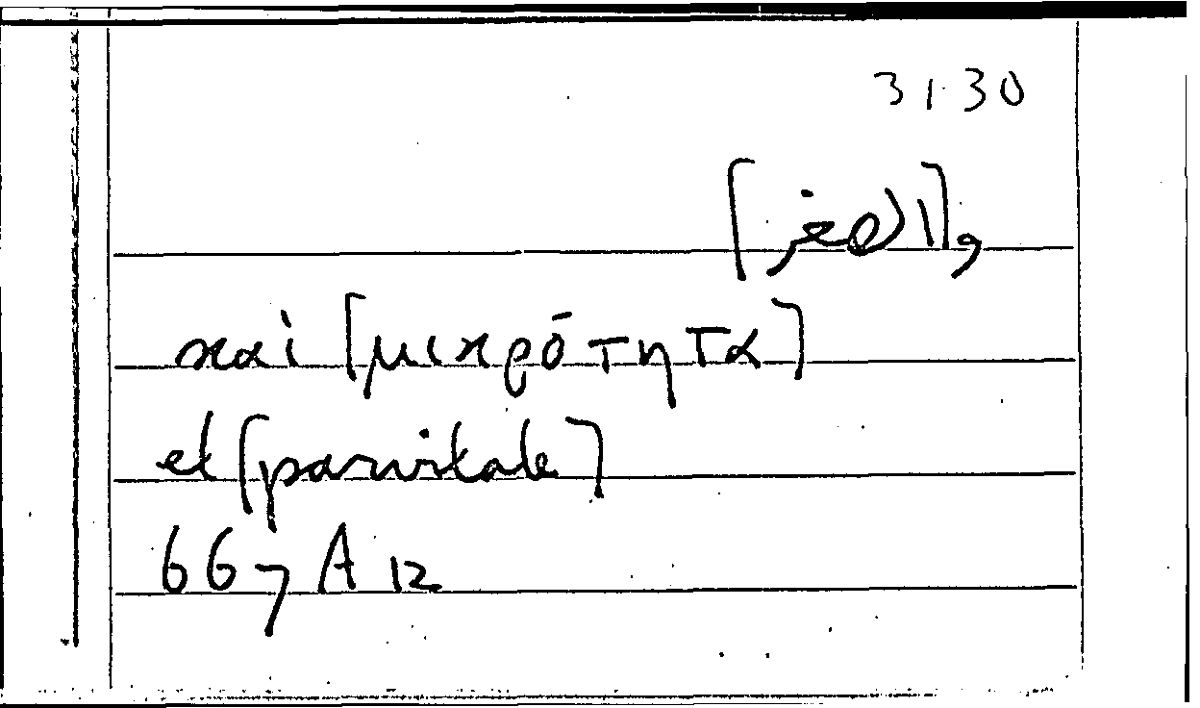 31.30
و[الصغر]
καὶ [μικρότητα]
et [parvitate]
667 A 12